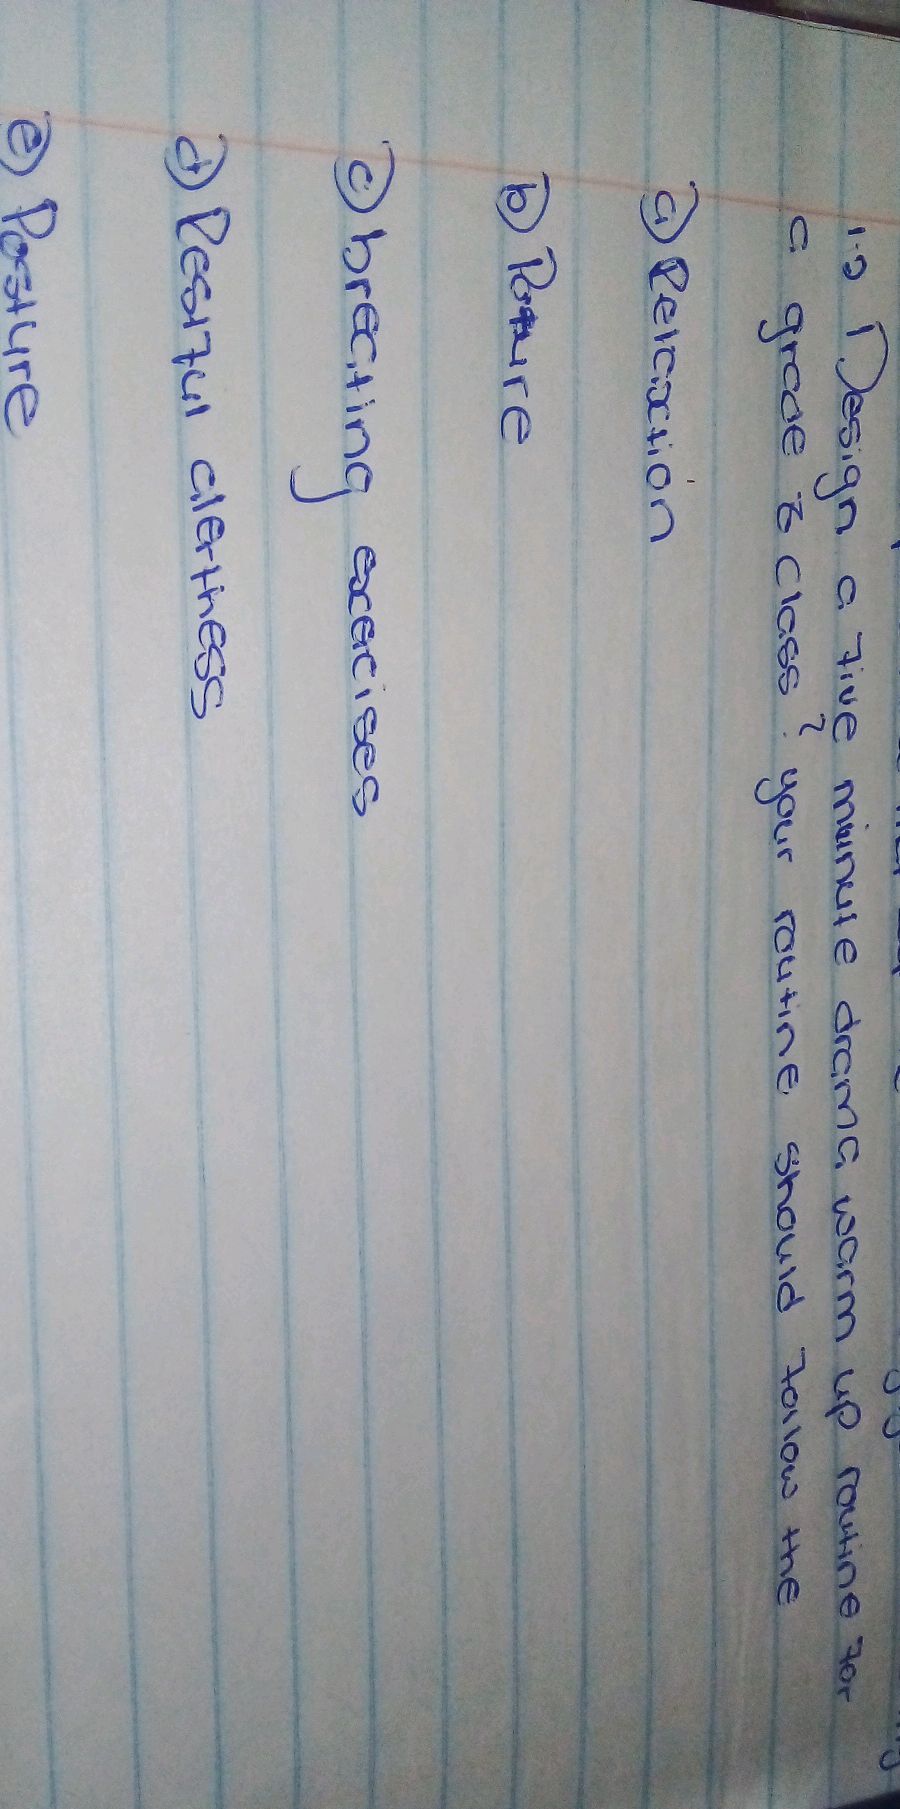 1.2 Design a five minute drama warm up routine for
a grade 3 class? your routine should follow the
a) Relaxation
b) Posture
c) breating exercises
d) Restful alertness
e) Posture